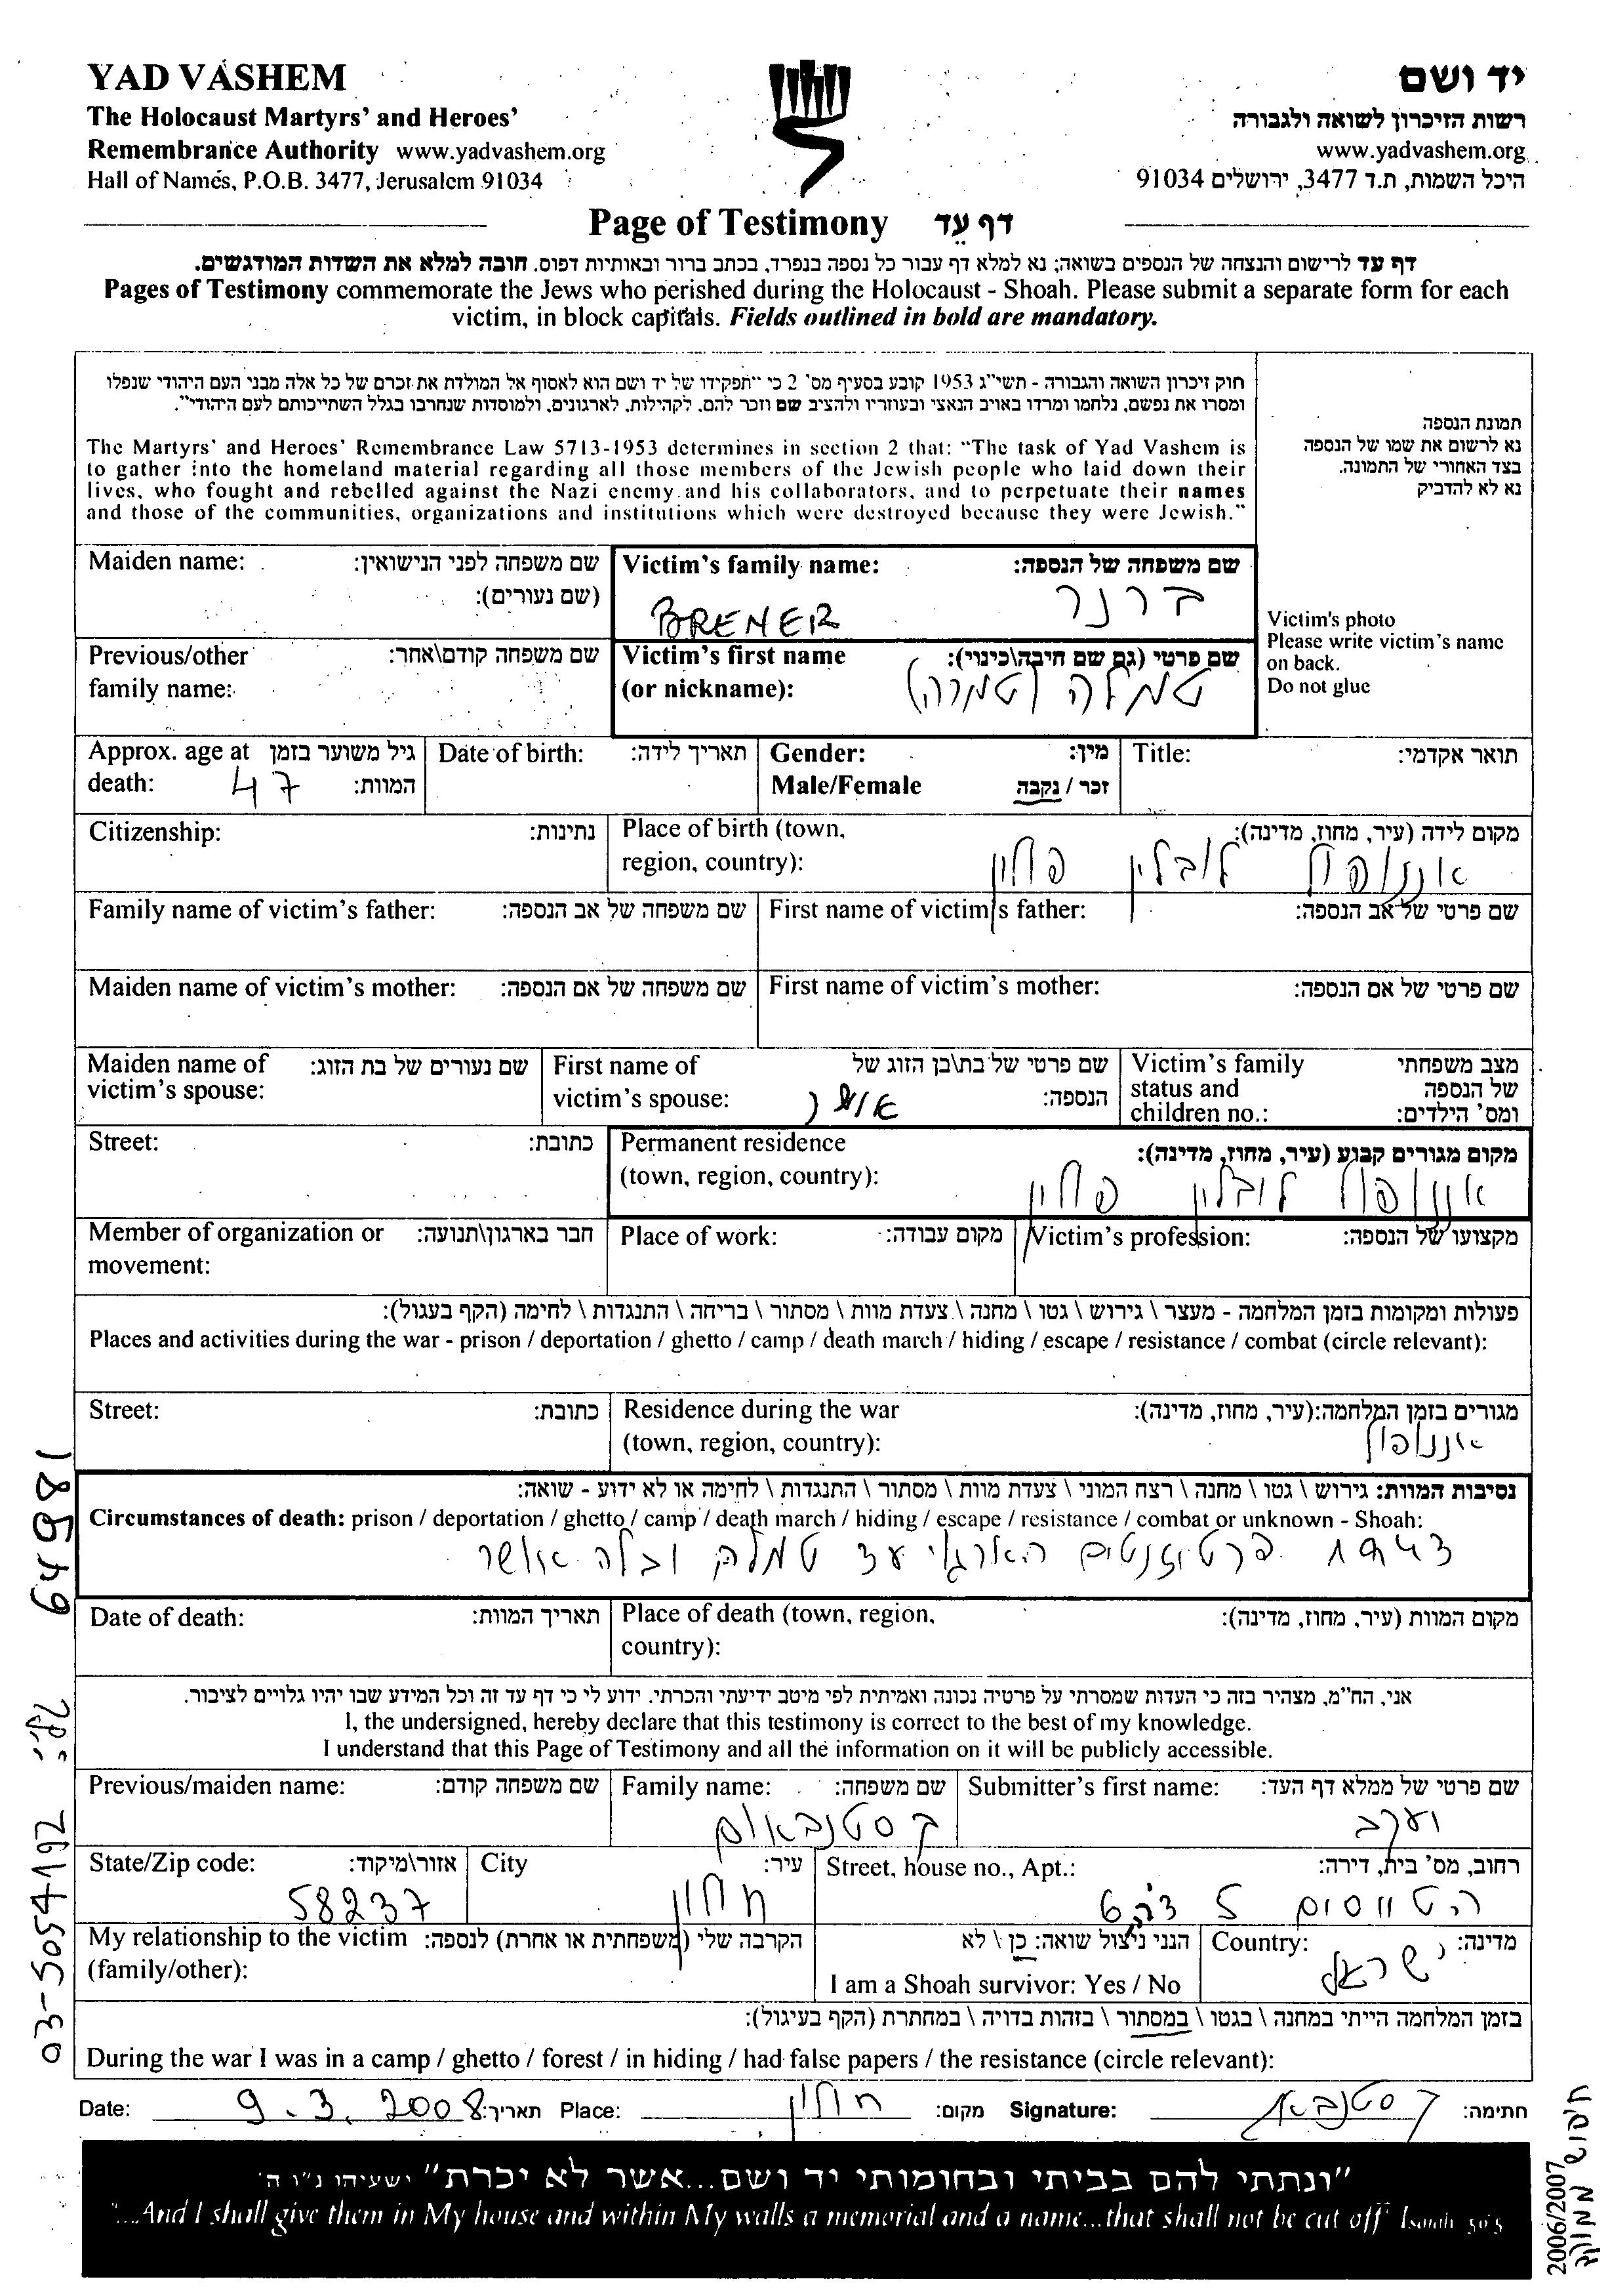 YAD VASHEM
The Holocaust Martyrs' and Heroes'
Remembrance Authority www.yadvashem.org
Hall of Names, P.O.B. 3477, Jerusalem 91034
יד ושם
רשות הזיכרון לשואה ולגבורה
www.yadvashem.org
היכל השמות, ת.ד 3477, ירושלים 91034
Page of Testimony דף עֵד
דף עד לרישום והנצחה של הנספים בשואה; נא למלא דף עבור כל נספה בנפרד, בכתב ברור ובאותיות דפוס. חובה למלא את השדות המודגשים.
Pages of Testimony commemorate the Jews who perished during the Holocaust - Shoah. Please submit a separate form for each
victim, in block capitals. Fields outlined in bold are mandatory.
חוק זיכרון השואה והגבורה - תשי"ג 1953 קובע בסעיף מס' 2 כי "תפקידו של יד ושם הוא לאסוף אל המולדת את זכרם של כל אלה מבני העם היהודי שנפלו
ומסרו את נפשם, נלחמו ומרדו באויב הנאצי ובעוזריו ולהציב שם וזכר להם, לקהילות, לארגונים, ולמוסדות שנחרבו בגלל השתייכותם לעם היהודי".
The Martyrs' and Heroes' Remembrance Law 5713-1953 determines in section 2 that: "The task of Yad Vashem is
to gather into the homeland material regarding all those members of the Jewish people who laid down their
lives, who fought and rebelled against the Nazi enemy and his collaborators, and to perpetuate their names
and those of the communities, organizations and institutions which were destroyed because they were Jewish."
תמונת הנספה
נא לרשום את שמו של הנספה
בצד האחורי של התמונה.
נא לא להדביק
Victim's photo
Please write victim's name
on back.
Do not glue
Maiden name: שם משפחה לפני הנישואין:
(שם נעורים):
Victim's family name: שם משפחה של הנספה:
BRENER ברנר
Previous/other שם משפחה קודם\אחר:
family name:
Victim's first name שם פרטי (גם שם חיבה\כינוי):
(or nickname): טמלה (טמרה)
Approx. age at גיל משוער בזמן
death: 47 המוות:
Date of birth: תאריך לידה:
Gender: מין:
Male/Female זכר / נקבה
Title: תואר אקדמי:
Citizenship: נתינות:
Place of birth (town, מקום לידה (עיר, מחוז, מדינה):
region, country): אננופול לובלין פולין
Family name of victim's father: שם משפחה של אב הנספה:
First name of victim's father: שם פרטי של אב הנספה:
Maiden name of victim's mother: שם משפחה של אם הנספה:
First name of victim's mother: שם פרטי של אם הנספה:
Maiden name of שם נעורים של בת הזוג:
victim's spouse:
First name of שם פרטי של בת\בן הזוג של
victim's spouse: אושר הנספה:
Victim's family מצב משפחתי
status and של הנספה
children no.: ומס' הילדים:
Street: כתובת:
Permanent residence מקום מגורים קבוע (עיר, מחוז, מדינה):
(town, region, country): אננופול לובלין פולין
Member of organization or חבר בארגון\תנועה:
movement:
Place of work: מקום עבודה:
Victim's profession: מקצועו של הנספה:
פעולות ומקומות בזמן המלחמה - מעצר \ גירוש \ גטו \ מחנה \ צעדת מוות \ מסתור \ בריחה \ התנגדות \ לחימה (הקף בעגול):
Places and activities during the war - prison / deportation / ghetto / camp / death march / hiding / escape / resistance / combat (circle relevant):
Street: כתובת:
Residence during the war מגורים בזמן המלחמה:(עיר, מחוז, מדינה):
(town, region, country): אננופול
נסיבות המוות: גירוש \ גטו \ מחנה \ רצח המוני \ צעדת מוות \ מסתור \ התנגדות \ לחימה או לא ידוע - שואה:
Circumstances of death: prison / deportation / ghetto / camp / death march / hiding / escape / resistance / combat or unknown - Shoah:
1943 פרטיזנטים טמלה ובלה אושר
Date of death: תאריך המוות:
Place of death (town, region, מקום המוות (עיר, מחוז, מדינה):
country):
אני, הח"מ, מצהיר בזה כי העדות שמסרתי על פרטיה נכונה ואמיתית לפי מיטב ידיעתי והכרתי. ידוע לי כי דף עד זה וכל המידע שבו יהיו גלויים לציבור.
I, the undersigned, hereby declare that this testimony is correct to the best of my knowledge.
I understand that this Page of Testimony and all the information on it will be publicly accessible.
Previous/maiden name: שם משפחה קודם:
Family name: שם משפחה:
קסטנבאום
Submitter's first name: שם פרטי של ממלא דף העד:
יעקב
State/Zip code: אזור\מיקוד:
58237
City עיר:
חולון
Street, house no., Apt.: רחוב, מס' בית, דירה:
5 דירה 6
My relationship to the victim הקרבה שלי (משפחתית או אחרת) לנספה:
(family/other):
הנני ניצול שואה: כן \ לא
I am a Shoah survivor: Yes / No
Country: מדינה:
ישראל
בזמן המלחמה הייתי במחנה \ בגטו \ במסתור \ בזהות בדויה \ במחתרת (הקף בעיגול):
During the war I was in a camp / ghetto / forest / in hiding / had false papers / the resistance (circle relevant):
Date: 9.3.2008 תאריך: Place: חולון מקום: Signature: קסטנבא חתימה:
"ונתתי להם בביתי ובחומותי יד ושם...אשר לא יכרת" ישעיהו נ"ו ה'
"...And I shall give them in My house and within My walls a memorial and a name...that shall not be cut off" Isaiah 56:5
649881
03-5054192
2006/2007